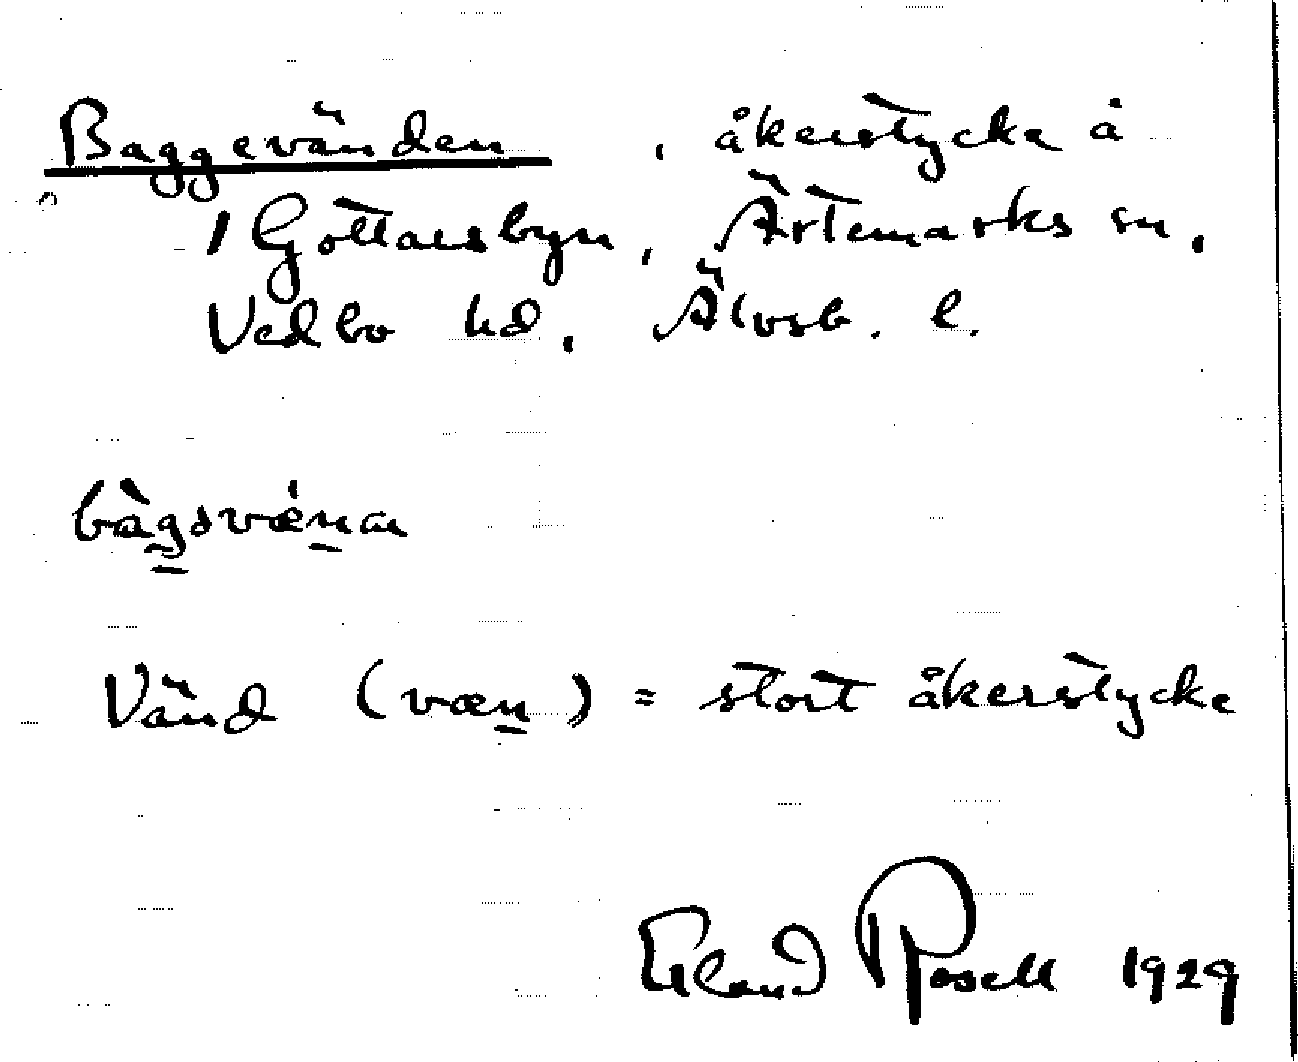 Baggevänden, åkerstycke å
1 Gottarsbyn, Ärtemarks sn,
Vedbo hd, Älvsb. l.
Vänd (væn) = stort åkerstycke
Erland Rosell 1929